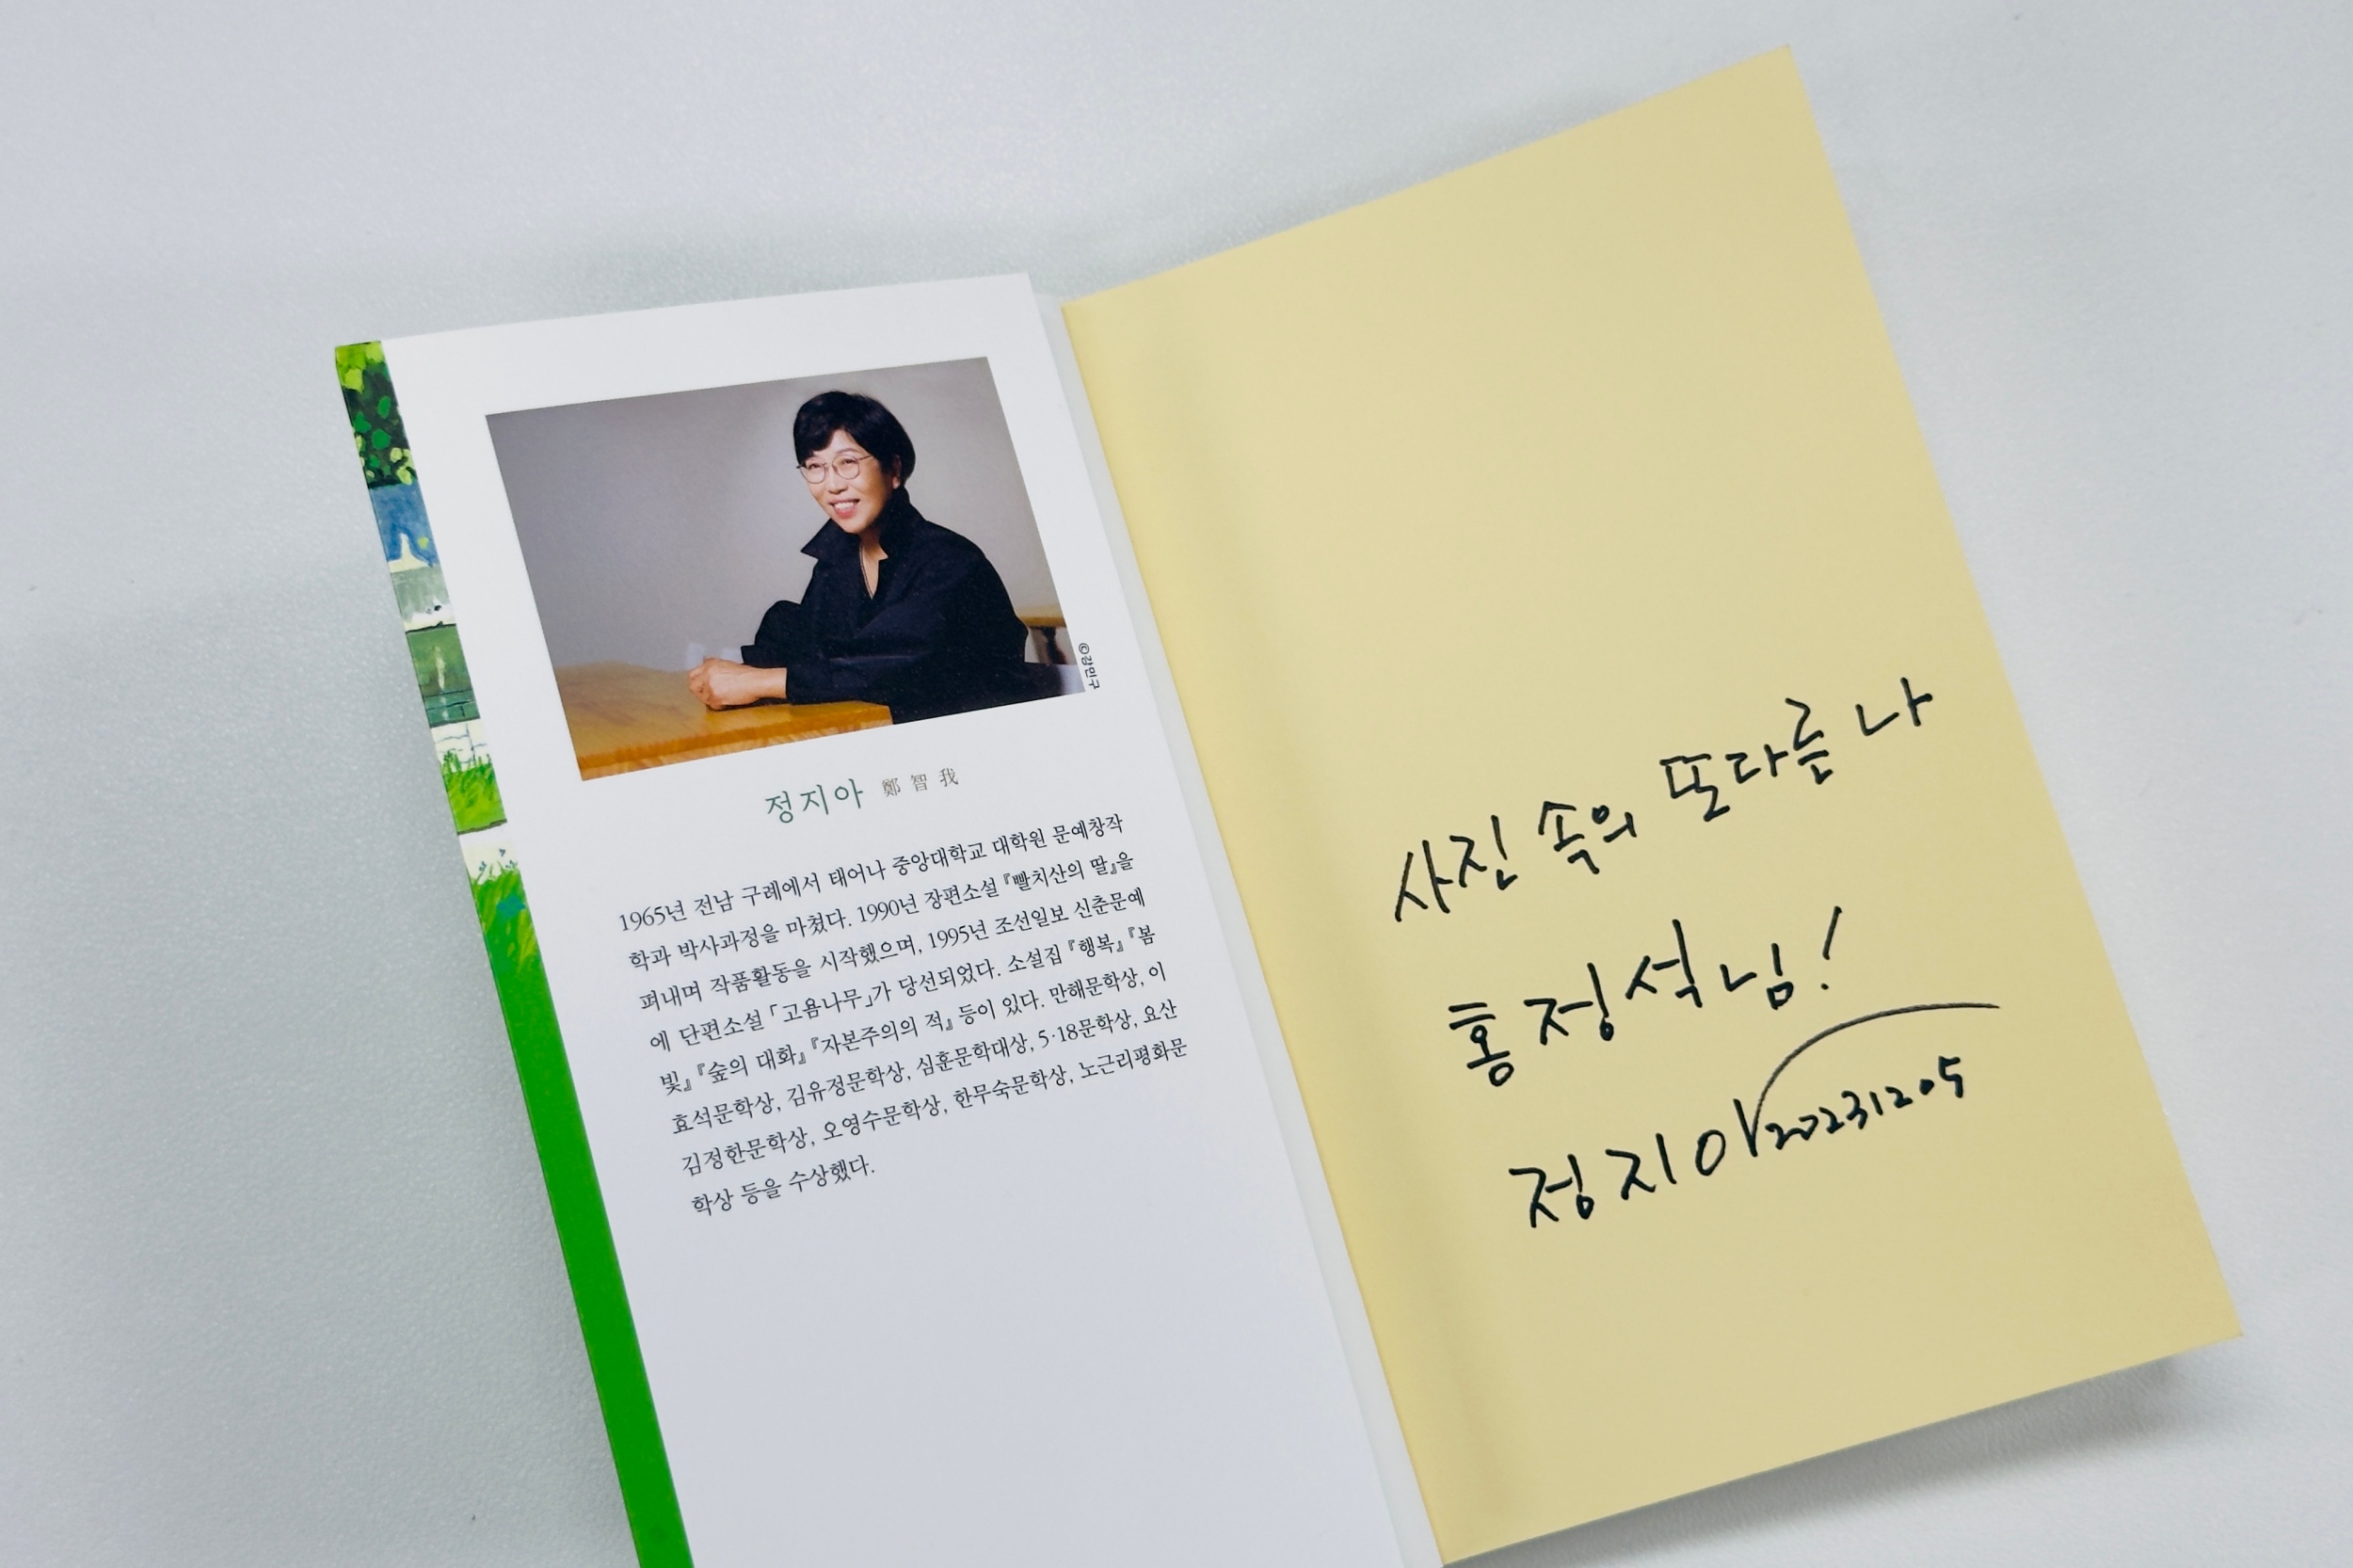 ©강민구
정지아 鄭智我
1965년 전남 구례에서 태어나 중앙대학교 대학원 문예창작
학과 박사과정을 마쳤다. 1990년 장편소설 『빨치산의 딸』을
펴내며 작품활동을 시작했으며, 1995년 조선일보 신춘문예
에 단편소설 「고욤나무」가 당선되었다. 소설집 『행복』 『봄
빛』 『숲의 대화』 『자본주의의 적』 등이 있다. 만해문학상, 이
효석문학상, 김유정문학상, 심훈문학대상, 5·18문학상, 요산
김정한문학상, 오영수문학상, 한무숙문학상, 노근리평화문
학상 등을 수상했다.
사진 속의 또다른 나
홍정석님!
정지아 20231205